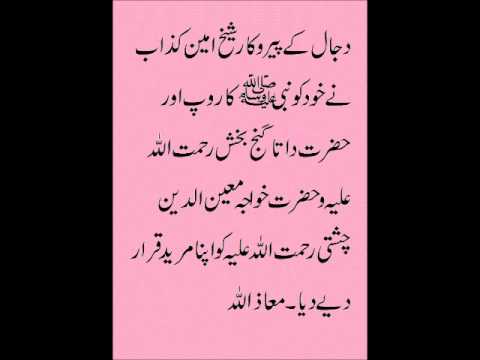 دجال کے پیروکار شیخ امین کذاب
نے خود کو نبی ﷺ کا روپ اور
حضرت داتا گنج بخش رحمت اللہ
علیہ و حضرت خواجہ معین الدین
چشتی رحمت اللہ علیہ کو اپنا مرید قرار
دیے دیا۔ معاذ اللہ